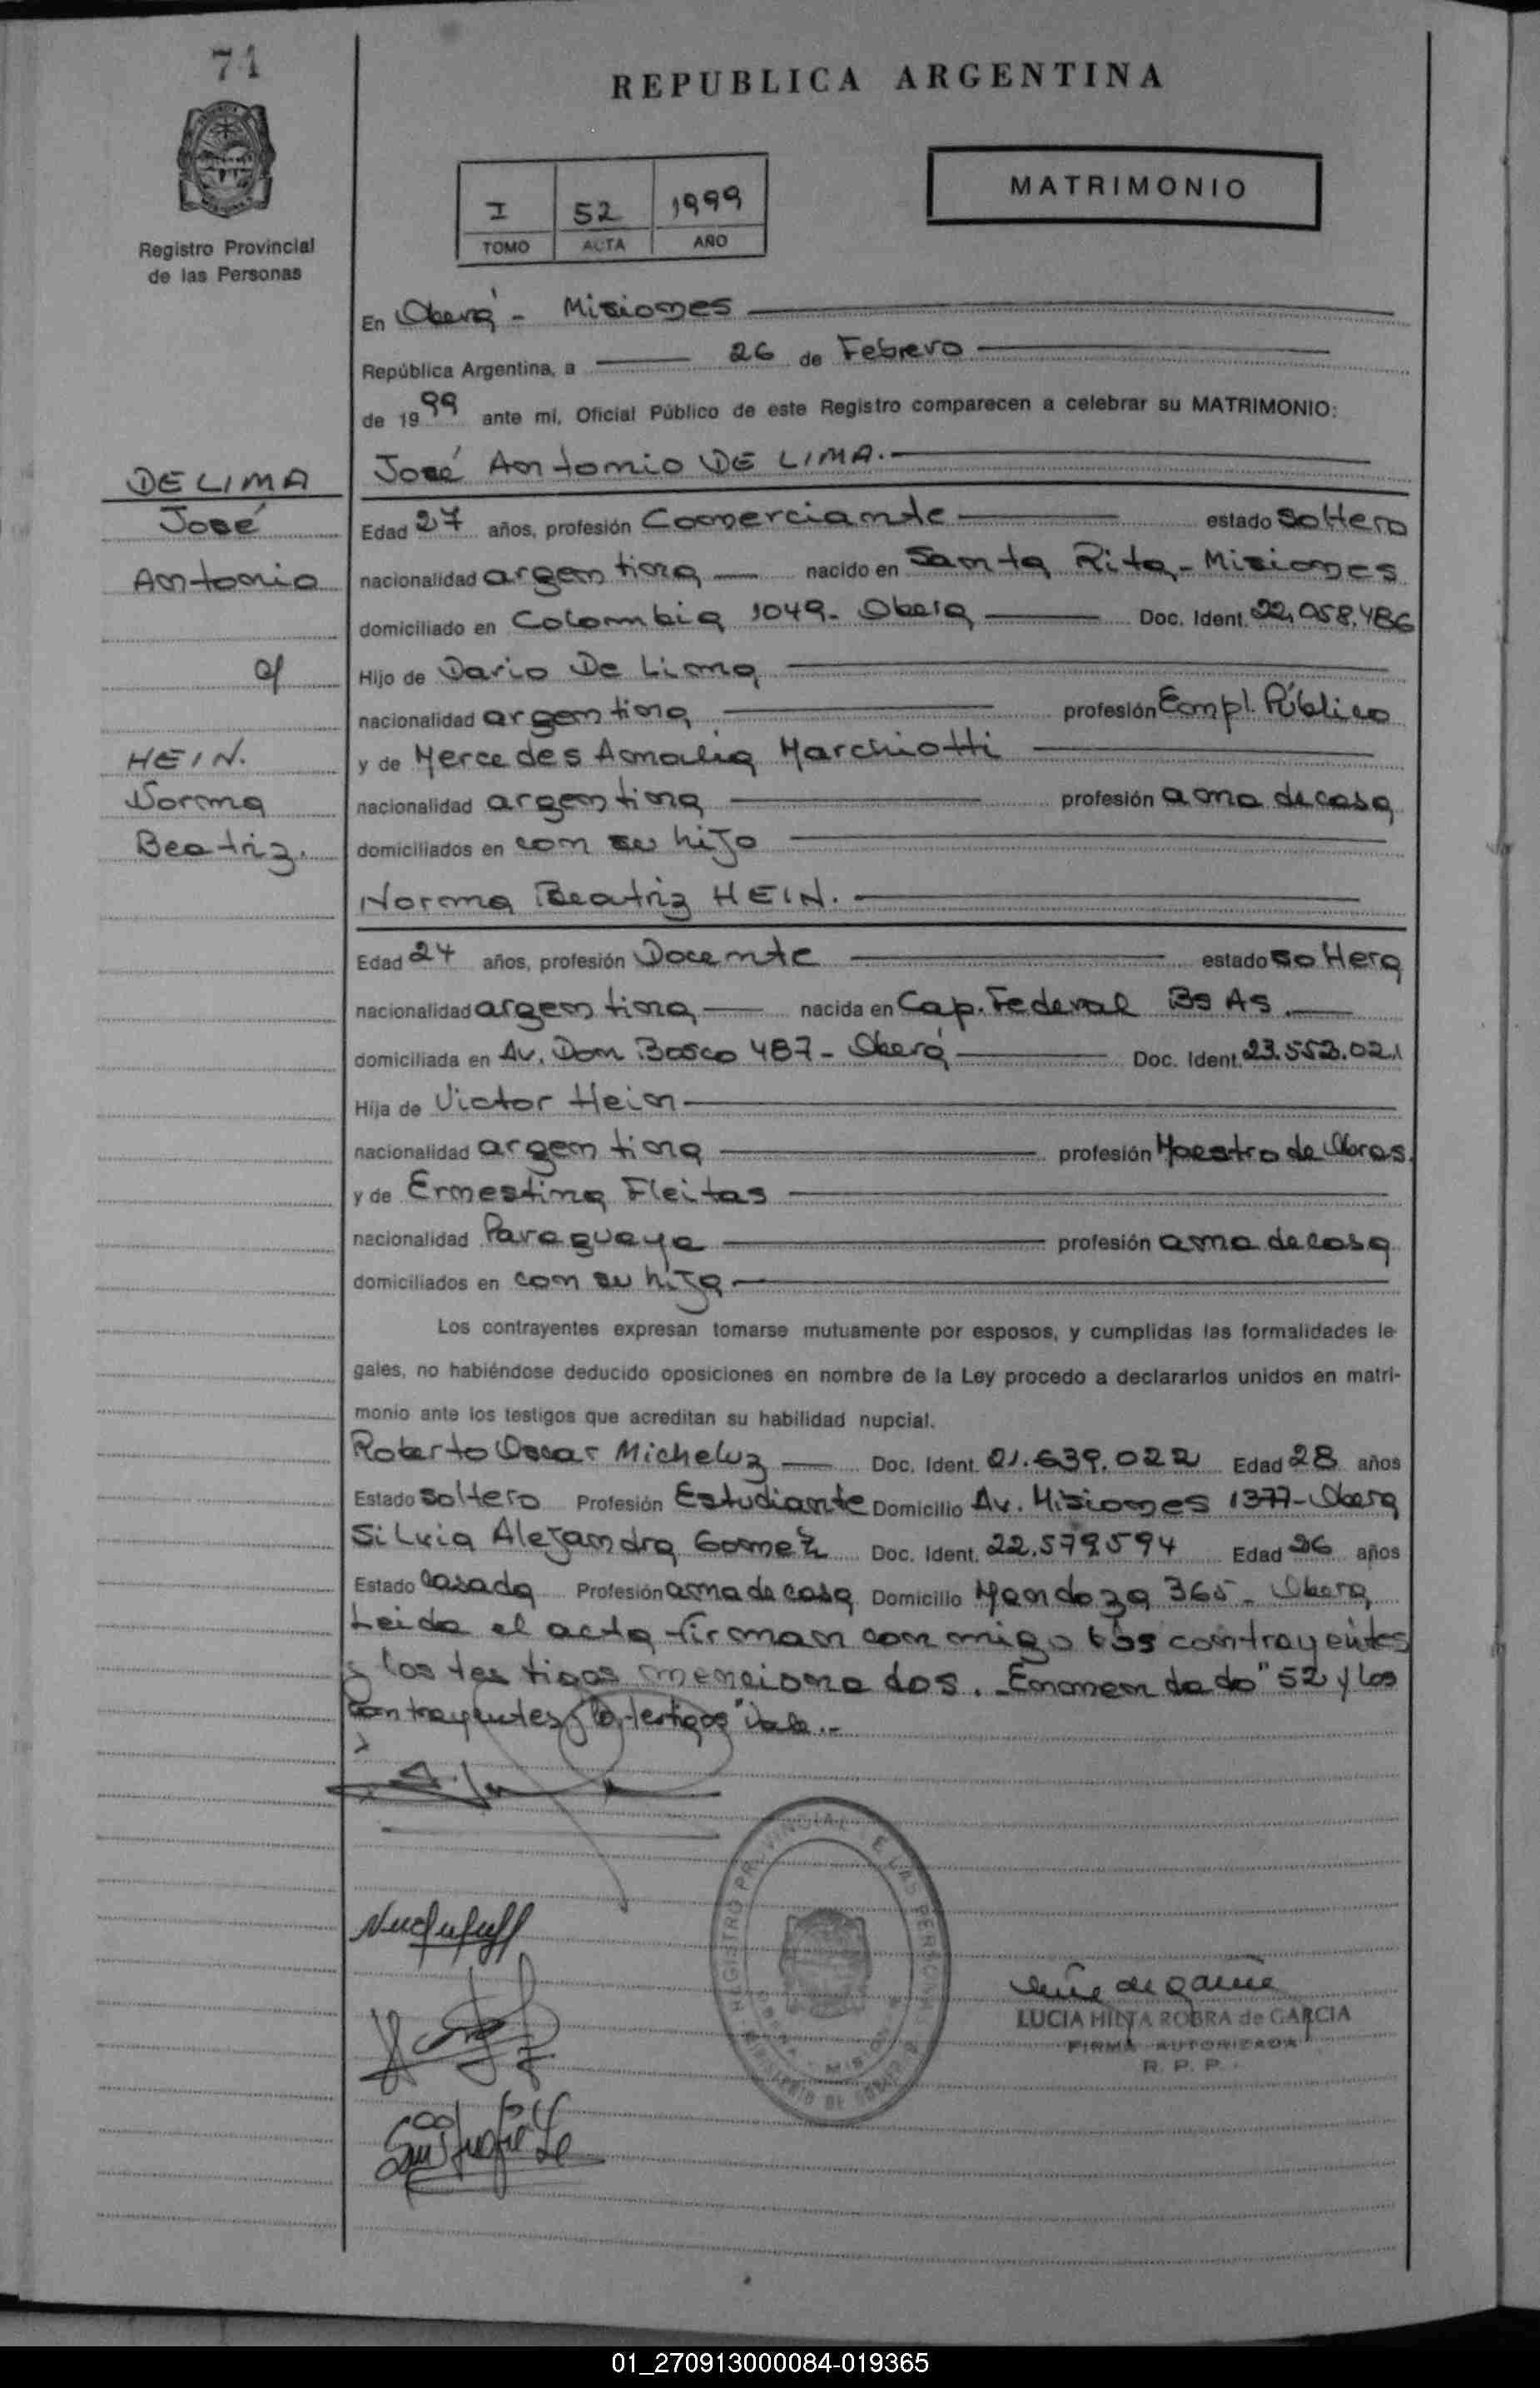 71
REPUBLICA ARGENTINA
MATRIMONIO
I 52 1999
TOMO ACTA AÑO
Registro Provincial
de las Personas
En Oberá - Misiones
República Argentina, a 26 de Febrero
de 1999 ante mí, Oficial Público de este Registro comparecen a celebrar su MATRIMONIO:
José Antonio DE LIMA.
DE LIMA
José
Antonio
c/
HEIN.
Norma
Beatriz.
Edad 27 años, profesión Comerciante estado soltero
nacionalidad argentina nacido en Santa Rita - Misiones
domiciliado en Colombia 1049 - Oberá Doc. Ident. 22.058.486
Hijo de Dario De Lima
nacionalidad argentina profesión Empl. Público
y de Mercedes Amalia Marchiotti
nacionalidad argentina profesión ama de casa
domiciliados en con su hijo
Norma Beatriz HEIN.
Edad 24 años, profesión Docente estado soltera
nacionalidad argentina nacida en Cap. Federal Bs As.
domiciliada en Av. Don Bosco 487 - Oberá Doc. Ident. 23.553.021
Hija de Victor Hein
nacionalidad argentina profesión Maestro de Obras.
y de Ernestina Fleitas
nacionalidad Paraguaya profesión ama de casa
domiciliados en con su hija
Los contrayentes expresan tomarse mutuamente por esposos, y cumplidas las formalidades le-
gales, no habiéndose deducido oposiciones en nombre de la Ley procedo a declararlos unidos en matri-
monio ante los testigos que acreditan su habilidad nupcial.
Roberto Oscar Micheluz Doc. Ident. 21.639.022 Edad 28 años
Estado soltero Profesión Estudiante Domicilio Av. Misiones 1377 - Oberá
Silvia Alejandra Gomez Doc. Ident. 22.579.594 Edad 26 años
Estado casada Profesión ama de casa Domicilio Mendoza 365 - Oberá
Leida el acta firman conmigo los contrayentes
y los testigos mencionados. - Enmendado "52 y los
contrayentes y los testigos" Vale.-
REGISTRO PROVINCIAL DE LAS PERSONAS
LUCIA HILTA ROBRA de GARCIA
FIRMA AUTORIZADA
R. P. P.
01_270913000084-019365